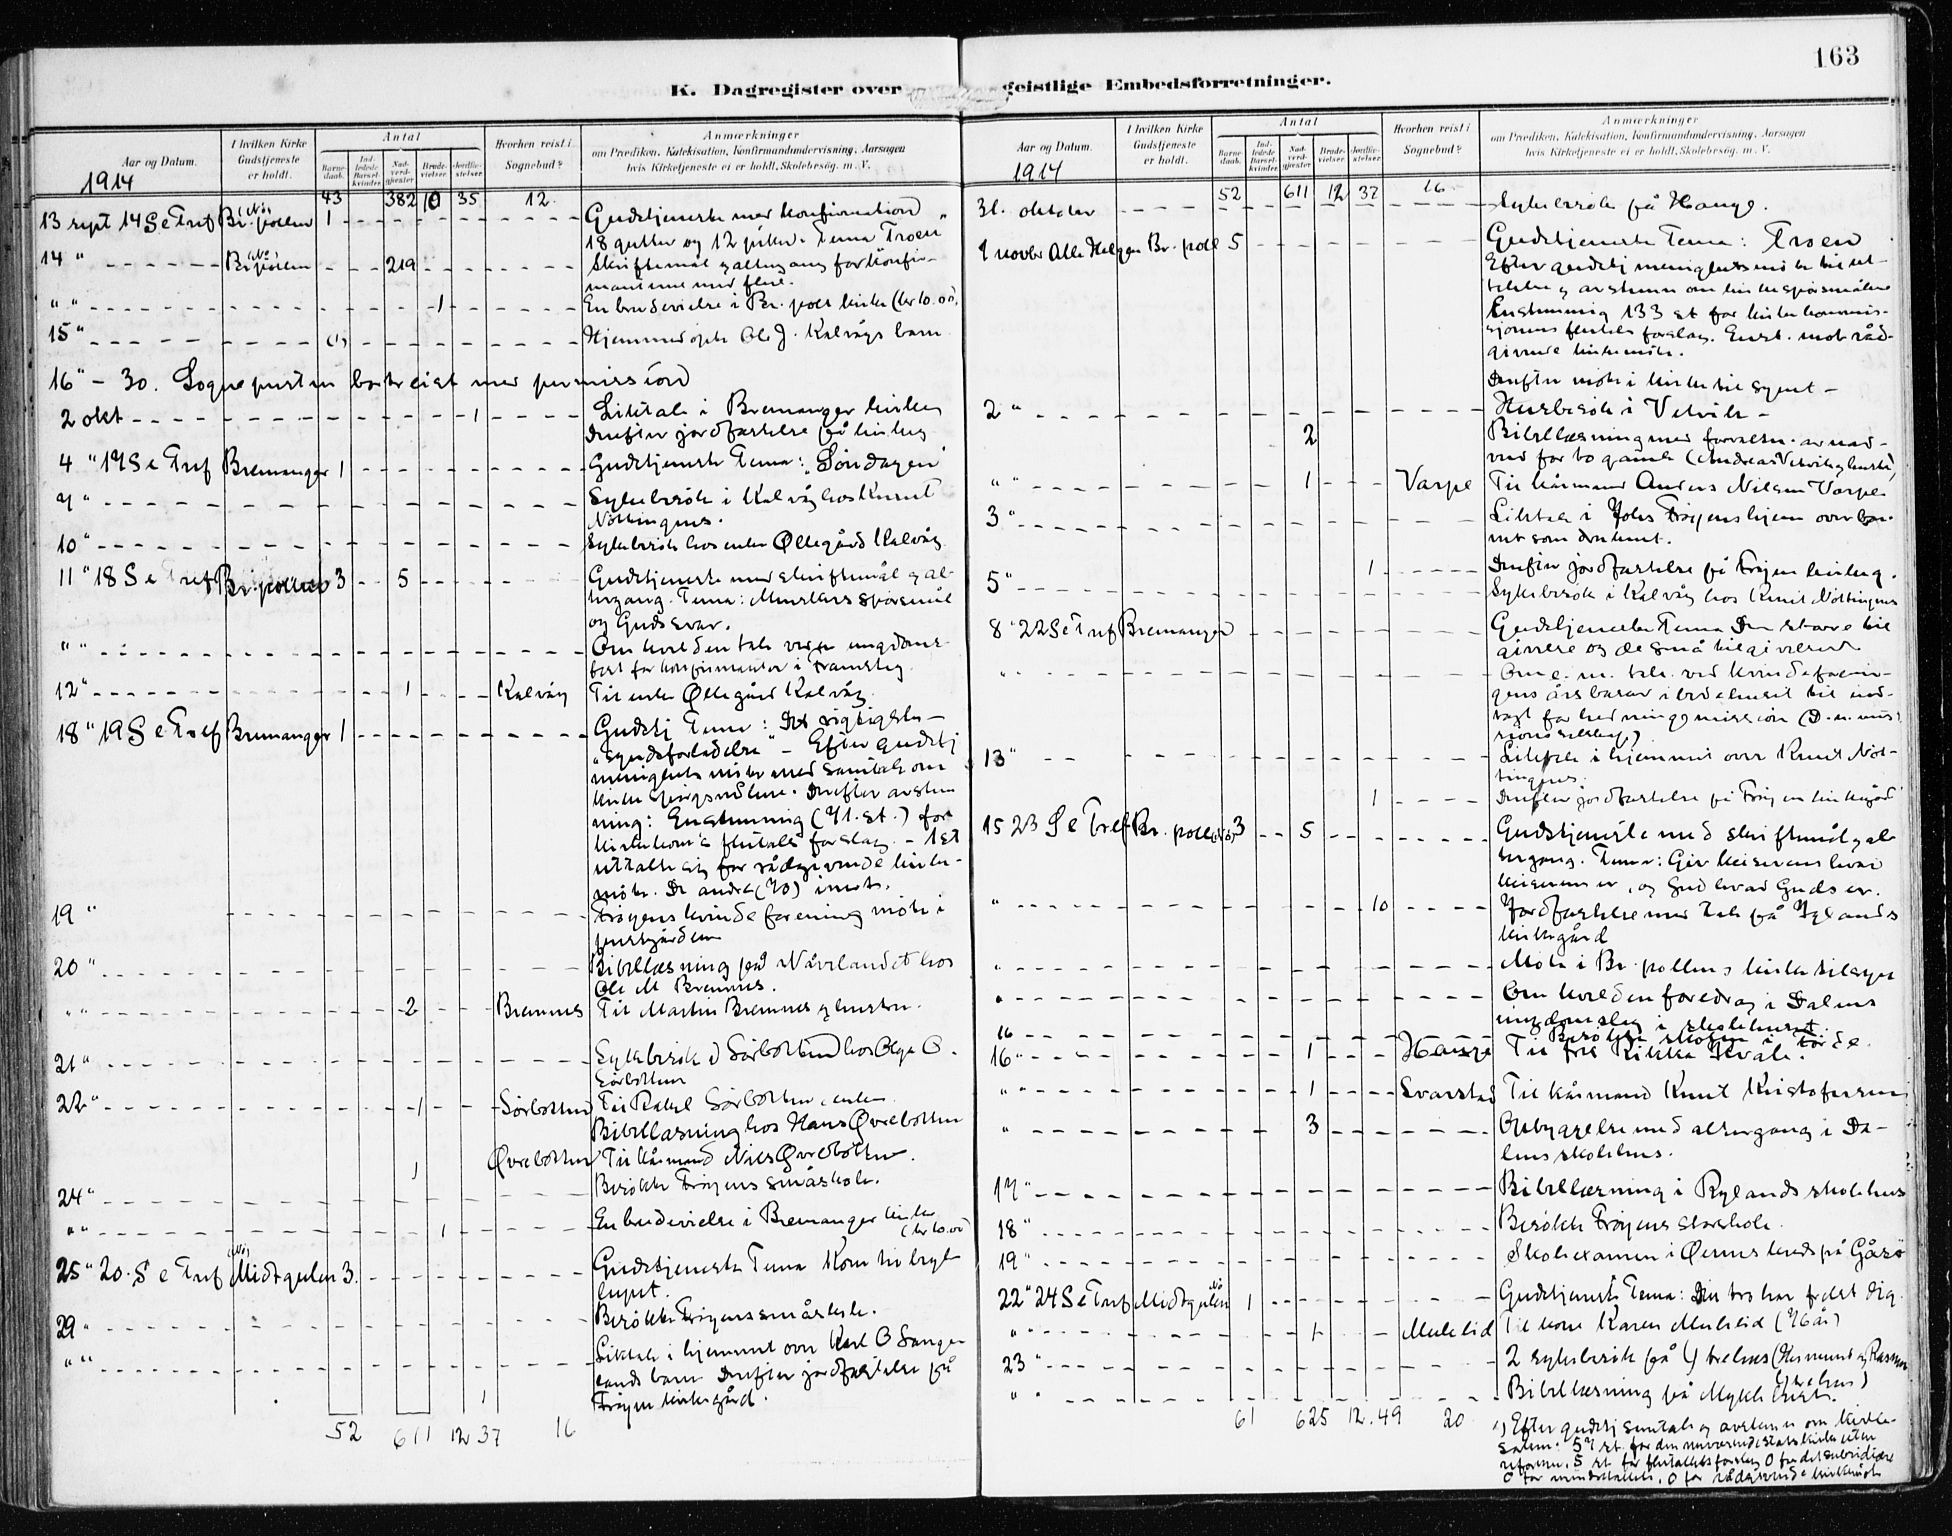 163
K. Dagregister over geistlige Embedsforretninger.
Aar og Datum.
I hvilken Kirke Gudstjeneste er holdt.
Antal
Barnedaab.
Indledede Barselkvinder.
Nadverdgjester
Brudevielser.
Jordfæstelser.
Hvorhen reist i Sognebud?
Anmærkninger
om Prædiken, Katekisation, Konfirmandundervisning, Aarsagen
hvis Kirketjeneste ei er holdt, Skolebesøg. m. V.
1914
43 382 10 35 12
13 sept 14 S e Tref Br. pollen 1 Gudstjeneste med konfirmation
18 gutter og 12 piker. Tema Troen
14 " Br. pollen 219 Skriftemål og altergang for konfir-
manterne med flere.
" " 1 En brudevielse i Br. poll kirke (kr 10.00)
15 " (1) Hjemmedøpt Ole J. Kalvågs barn
16 " - 30. Sognepresten bortreist med permission
2 okt 1 Liktale i Bremanger kirke
Derefter jordfæstelse på kirkeg
4 " 17 S e Tref Bremanger 1 Gudstjeneste Tema: Søndagen
7 " Sykebesøk i Kalvåg hos Knut
Nøttingnes.
10 " Sykebesøk hos enke Øllegård Kalvåg
11 " 18 S e Tref Br. pollen 3 5 Gudstjeneste med skriftemål og al-
tergang. Tema: Menneskers spørsmål
og Guds svar.
" " Om kvelden tale ved en ungdoms-
fest for konfirmanter i Framsteg.
12 " 1 Kalvåg Til enke Øllegård Kalvåg.
18 " 19 S e Tref Bremanger 1 Gudstj Tema: Det vigtigste –
"syndsforladelse" – Efter gudstj
menighetsmøte med samtale om
kirkespørgsmålene. Derefter avstem
ning: Enstemmig (71 st.) for
kirkekom's flertals forslag. – 1 st
uttalte sig for rådgivende kirke-
møte. De andre (70) imot.
19 " Frøyens kvindeforening møte i
prestgården
20 " Bibellæsning på Nåvelandet hos
Ole M Bremnes.
" " 2 Bremnes Til Martin Bremnes og hustru.
21 " Sykebesøk i Sørbotten hos Olga O.
Sørbotten
22 " 1 Sørbotten Til Rakel Sørbotten, enke
Bibellæsning hos Hans Øvrebotten
1 Øvrebotten Til kårmand Nils Øvrebotten.
24 " Besøkte Frøyens småskole.
" " 1 En brudevielse i Bremanger kirke
(kr 10.00)
25 " 20. S e Tref Midtgulen 3. Gudstjeneste Tema Kom til bryl
lupet.
29 " Besøkte Frøyens småskole.
" " Liktale i hjemmet over Karl O
lands barn Derefter jordfæstelse på
1 Frøyen kirkegård.
52 611 12 37 16
Aar og Datum.
I hvilken Kirke Gudstjeneste er holdt.
Antal
Barnedaab.
Indledede Barselkvinder.
Nadverdgjester
Brudevielser.
Jordfæstelser.
Hvorhen reist i Sognebud?
Anmærkninger
om Prædiken, Katekisation, Konfirmandundervisning, Aarsagen
hvis Kirketjeneste ei er holdt, Skolebesøg. m. V.
1914
52 611 12 37 16
31. oktober Sykebesøk på Hauge.
1 novbr Alle Helgen Br. poll 5 Gudstjeneste Tema: Troen
Efter gudstj menighetsmøte til ut-
talelse og avstemn om kirkespørsmålene
Enstemmig 133 st for kirkekommis-
sjonens flertals forslag. Enst. mot råd-
givende kirkemøte.
Derefter møte i kirketilsynet –
2 " Husbesøk i Vetvik –
2 Bibellæsning med forvaltn. av nad-
verd for to gamle (Andreas Vetvik og hustru)
" " 1 Varpe Til kårmand Anders Nilsen Varpe
3 " Liktale i Johs Frøyens hjem over bar-
net som druknet.
1 Derefter jordfæstelse på Frøyen kirkeg.
5 " Sykebesøk i Kalvåg hos Knut Nøttingnes
8 " 22 S e Tref Bremanger Gudstjeneste Tema Den store til
givere og de små tilgivelser
" Om e. m. tale ved kvindeforenin-
gens årsbasar i bedehuset til ind-
tægt for hedningemission (D. n. mis-
sionsselskap)
13 " Liktale i hjemmet over Knut Nøt-
tingnes.
1 Derefter jordfæstelse på Frøyen kirkegård
15 23 S e Tref Br. pollen 3 5 Gudstjeneste med skriftemål og al
tergang. Tema: Giv keiseren hvad
keiserens er, og Gud hvad Guds er.
" 10 Jordfæstelse med tale på Rylands
kirkegård
" Møte i Br. pollens kirketilsyn
" Om kvelden foredrag i Dalens
ungdomslag i skolehuset.
16 Besøkte skolen i Førde.
16 " 1 Hauge Til frk Rikka Kvåle.
" 1 Svarstad Til kårmand Knut Kristoffersen
" 3 Opbyggelse med altergang i Da-
lens skolehus.
17 " Bibellæsning i Rylands skolehus
18 " Besøkte Frøyens storskole.
19 " Skoleexamen i Oernes kreds på Gåsø
22 " 24 S e Tref Midtgulen 1 Gudstjeneste Tema: Din tro har frelst dig.
" " 1 Mulelid Til kone Karen Mulelid (76 år)
23 " 2 sykebesøk på
" " Bibellæsning på Myklebust.
61 625 12. 49 20
1) Efter gudstj samtale og avstemn om kirke-
saken: 57 st. for den nuværende statskirke uten
reformer, 5 st for flertallets forslag 0 for det subsidiære
0 for mindretallets, 0 for rådgivende kirkemøte